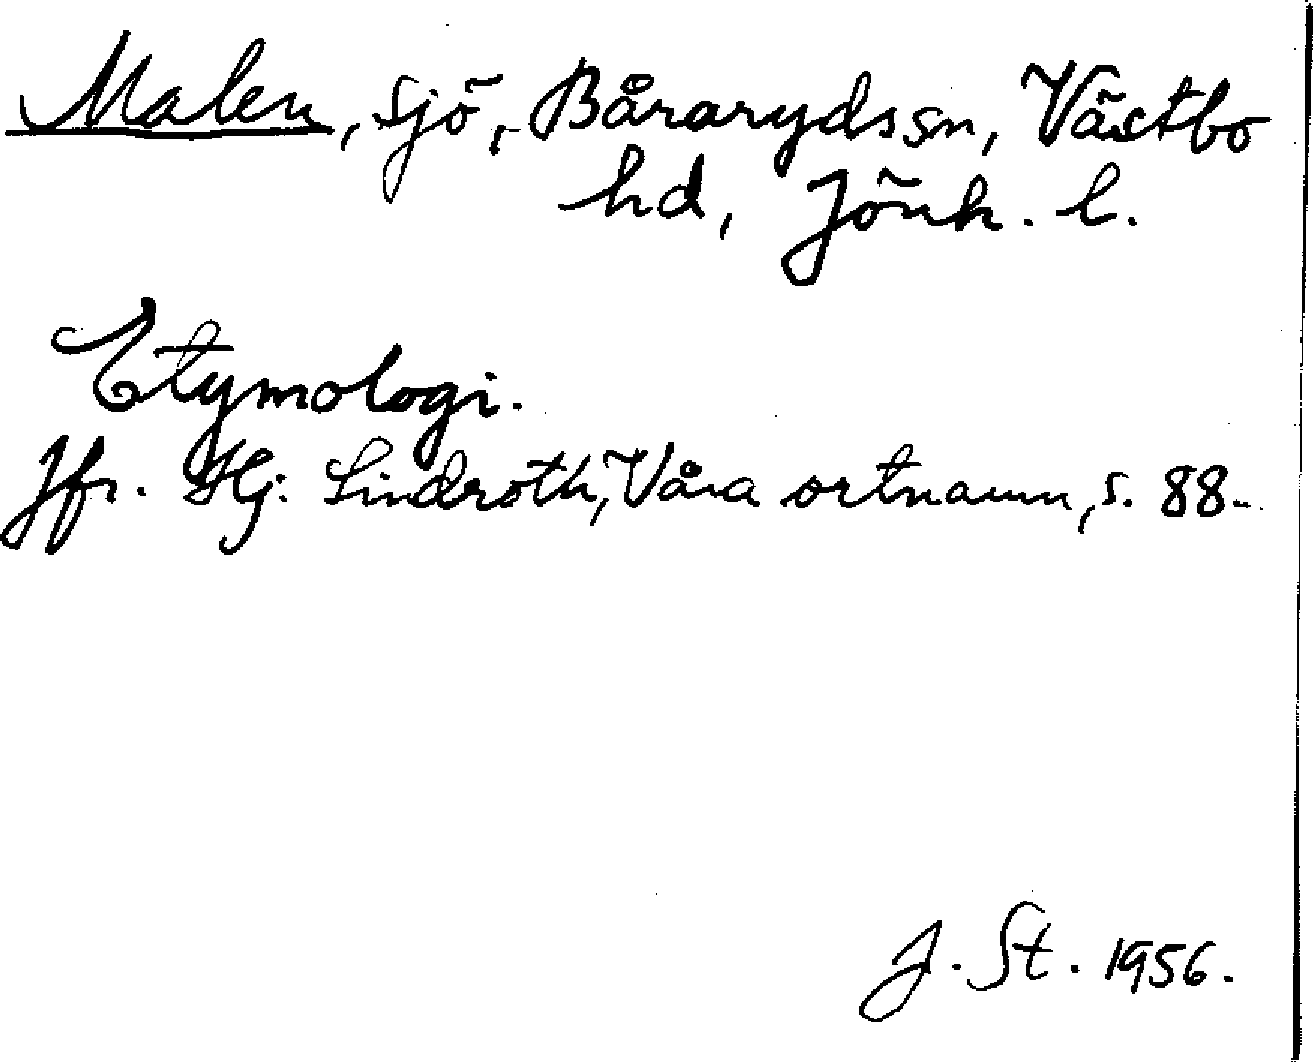 Malen, sjö, Bårarydssn, Västbo
hd, Jönk. l.
Etymologi.
Jfr. Hj. Lindroth, Våra ortnamn, s. 88.
J. St. 1956.